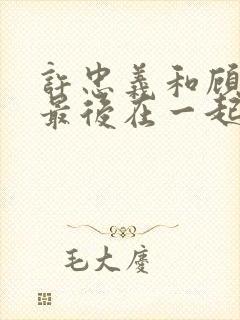 許忠義和顾
最後在一起
毛大慶